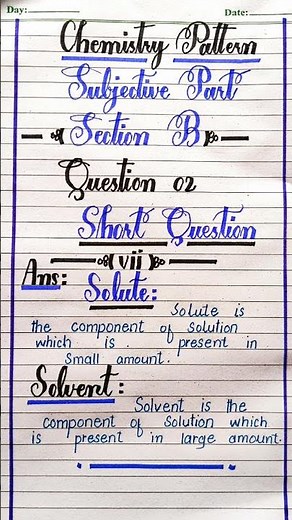 Day: Date:
Chemistry Pattern
Subjective Part
Section B
Question 02
Short Question
vii
Ans:
Solute:
Solute is
the component of solution
which is . present in
Small amount.
Solvent:
Solvent is the
component of Solution which
is present in large amount.